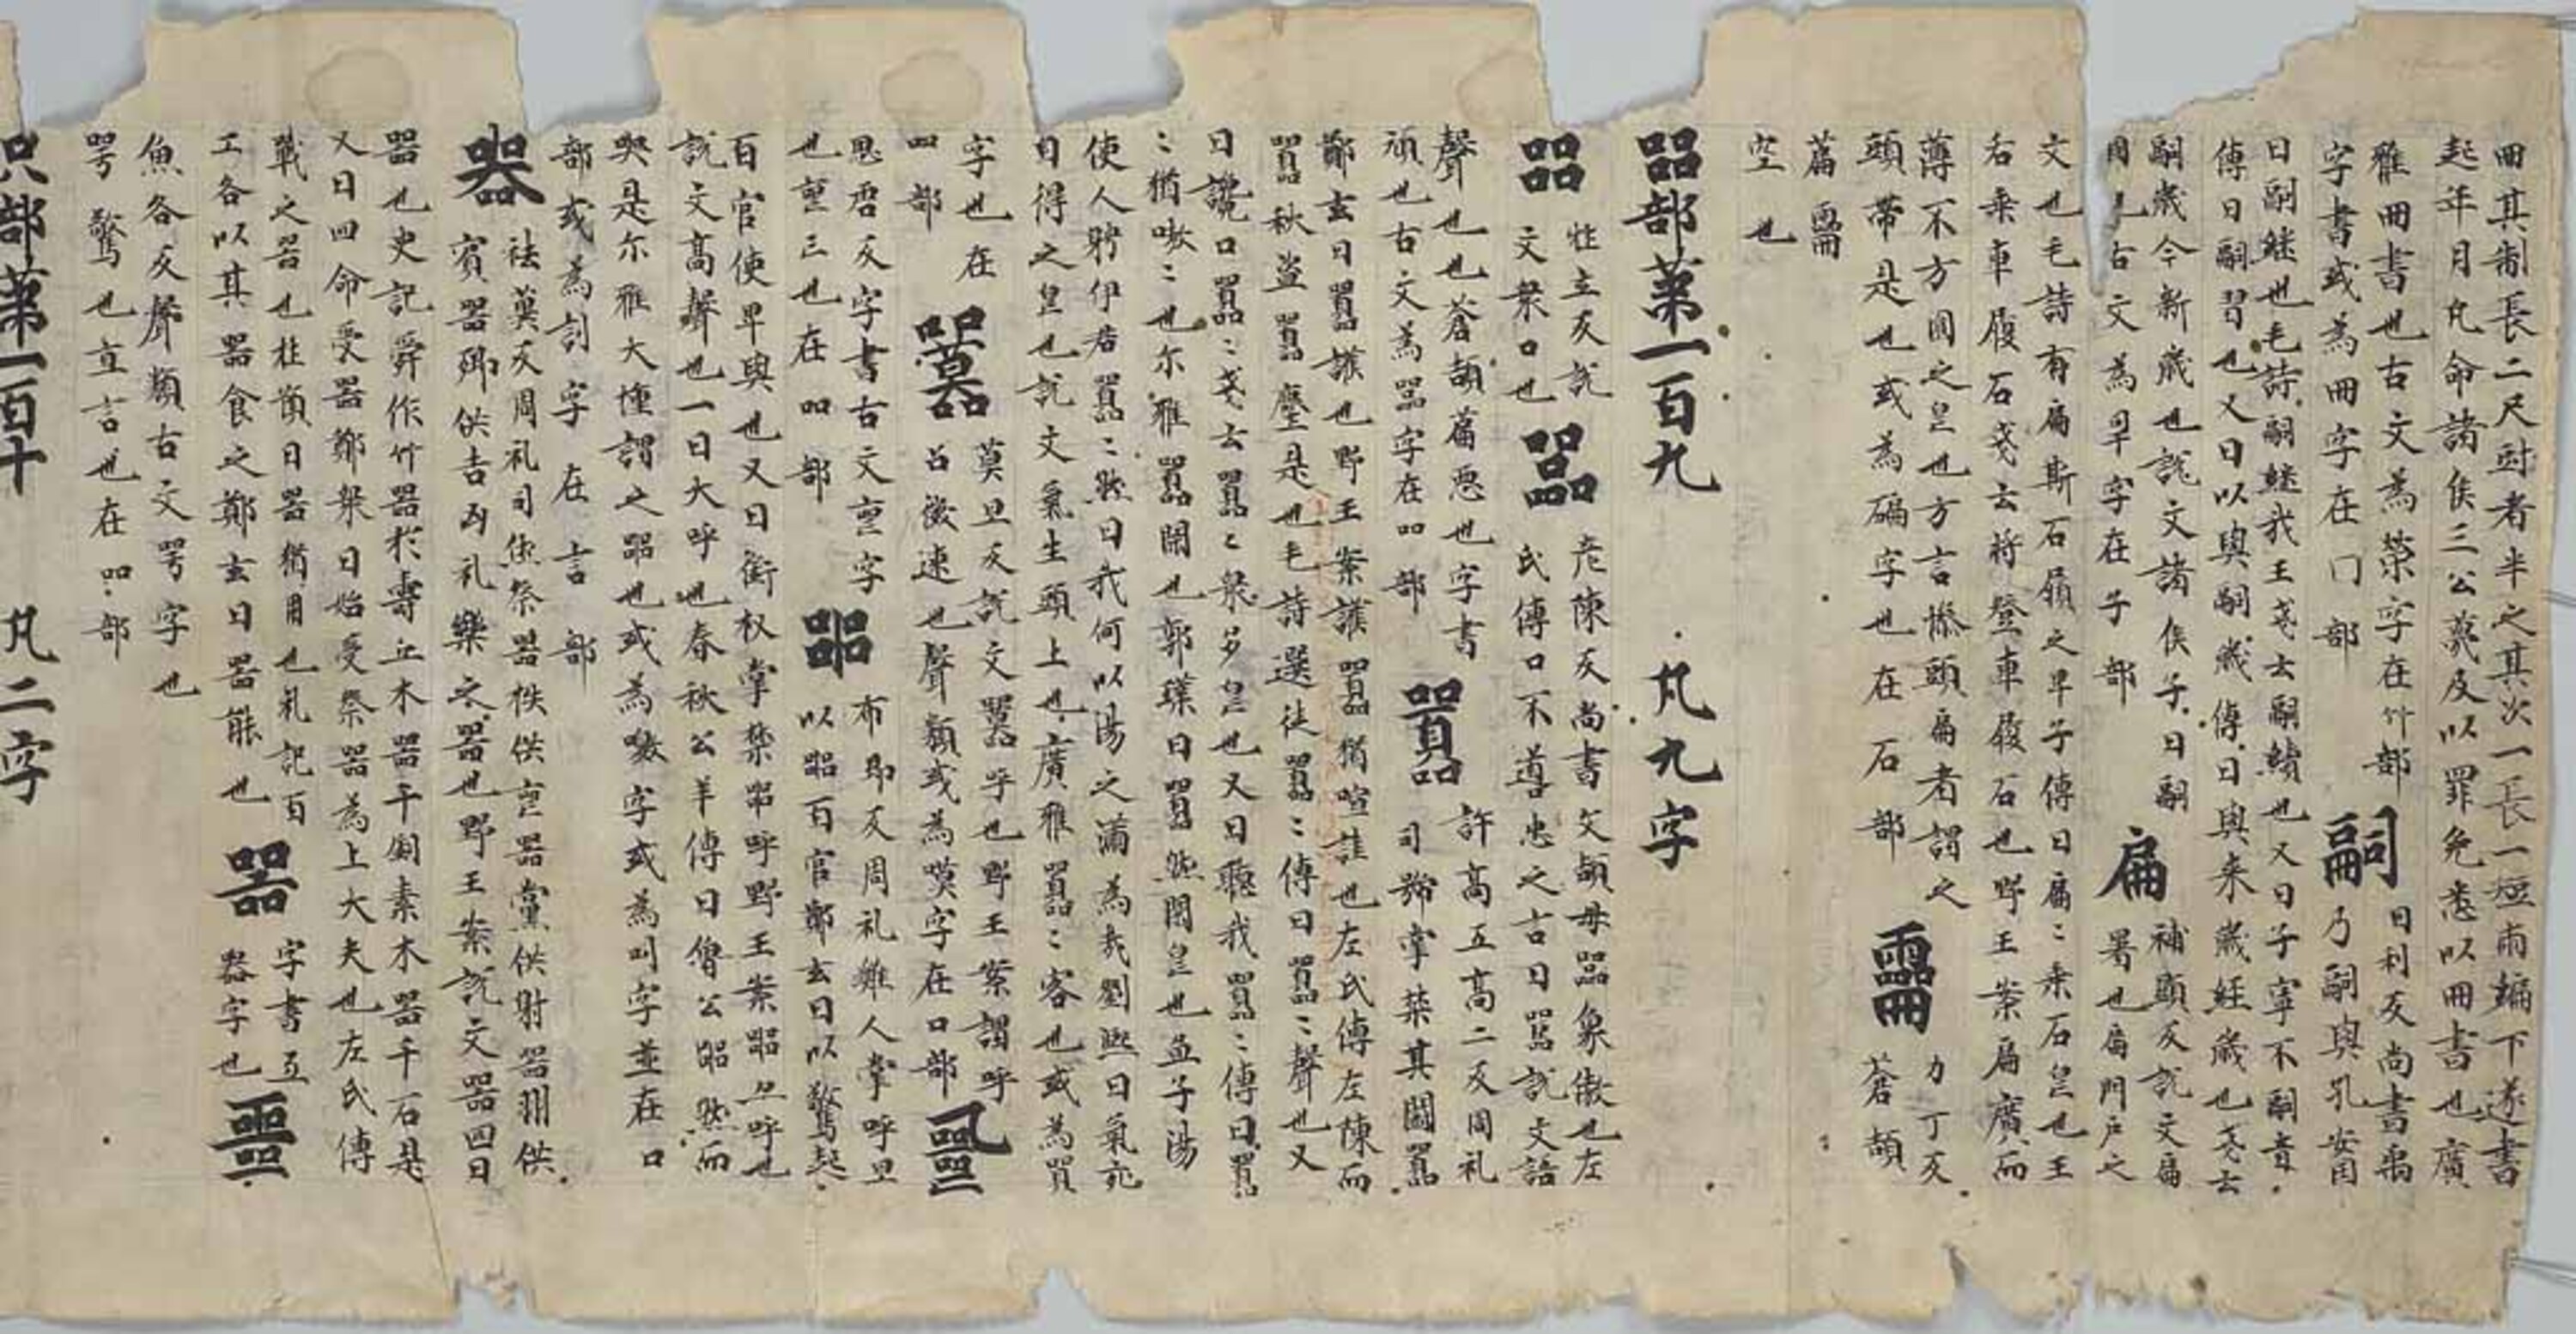 冊其制長二尺短者半之其次一長一短兩編下遂書
起年月凡命諸侯三公薨及以罪免悉以冊書也廣
雅冊書也古文為䇲字在竹部
字書或為冊字在冂部
嗣
日利反尚書禹
乃嗣興孔安国
曰嗣継也毛詩嗣継我王戔云嗣續也又曰子寧不嗣音
傳曰嗣習也又曰以興嗣歳傳曰興来歳継歳也戔云
嗣歳今新歳也說文諸侯子曰嗣
古文為孠字在子部
扁
補顯反說文扁
署也扁門戸之
文也毛詩有扁斯石履之卑子傳曰扁〻乗石皃也王
右乗車履石戔云将登車履石也野王案扁廣而
薄不方圓之皃也方言㯂頭扁者謂之
頭帶是也或為碥字也在石部
𠕲
力丁反
蒼頡
萹𠕲
空也
㗊部第一百九 凡九字
㗊
壮立反說
文衆口也
嚚
魚陳反尚書父頑母嚚象傲也左
氏傳口不道忠之古曰嚚說文語
聲也也蒼頡萹悪也字書
頑也古文為㗊字在㗊部
囂
許高五高二反周礼
司虣掌禁其闘囂
鄭玄曰囂讙也野王案讙囂猶喧譁也左氏傳左陳而
囂秋盗囂塵是也毛詩選徒囂〻傳曰囂〻聲也又
曰讒口囂〻戔云囂〻衆多皃也又曰聴我囂〻傳曰囂
〻猶嗷〻也尓雅囂閑也郭璞曰囂然閑皃也孟子湯
使人聘伊君囂〻然曰我何以湯之𤰞為㦲劉熙曰氣充
自得之皃也說文氣生頭上也廣雅囂〻容也或為買
字也在
㗊部
嘂
莫旦反說文呼也野王案謂呼
召㣲速也聲類或為嘆字在口部
思㗊反字書古文䘮字
也䘮亡也在㗊部
嘂
布弔反周礼雞人掌呼旦
以嘂百官鄭玄曰以驚起
百官使早興也又曰銜枚掌禁嘂呼野王案嘂亦呼也
說文髙聲也一曰大呼也春秋公羊傳曰魯公嘂然而
哭是尓雅大塤謂之嘂也或為噭字或為叫字並在口
部或為訆字在言部
器
祛冀反周礼司徒祭器族供䘮器黨供射器州供
賓器鄉供吉凶礼樂之器也野王案說文器皿曰
器也史記舜作什器於壽丘木器千個素木器千石是
又曰四命受器鄭衆曰始受祭器為上大夫也左氏傳
戰之器也杜預曰器猶用也礼記百
工各以其器食之鄭玄曰器能也
噐
字書亦
器字也
魚各反聲類古文咢字也
咢驚也直言也在㗊部
只部第一百十 凡二字